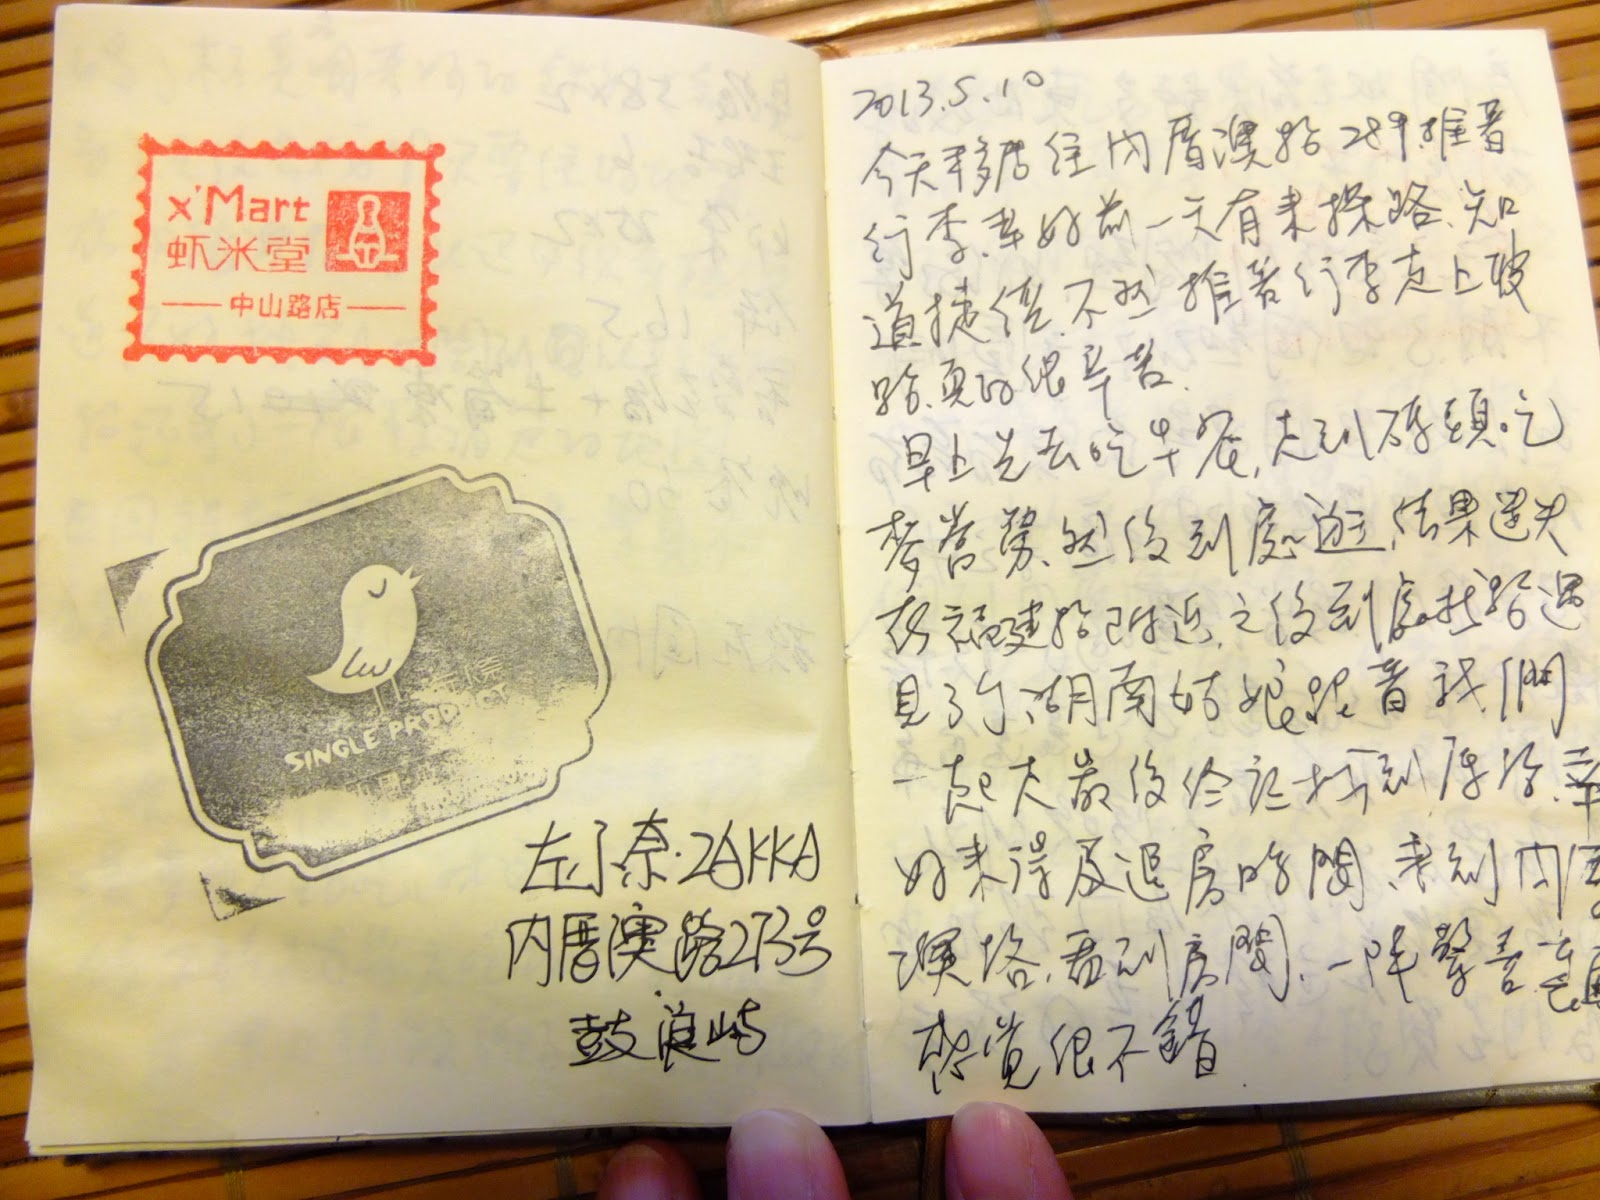 x'Mart
虾米堂
中山路店
SINGLE PRODUCT
左了奈·ZAKKA
内厝澳路273号
鼓浪屿
2013.5.10
今天移店住内厝澳路289.推著
行李.幸好前一天有来探路.知
道捷徑.不然 推著行李走上坡
路.真的很辛苦.
早上先去吃牛 走到 頭吃
麥當勞.然後到處逛.结果迷失
在福建路附近.之後到處找路遇
見了 湖南姑娘跟著我們
一起走 最後 找到 路.幸
好来得及退房時間.来到内厝
澳路.看到房間.一陣驚喜
感覚很不錯.